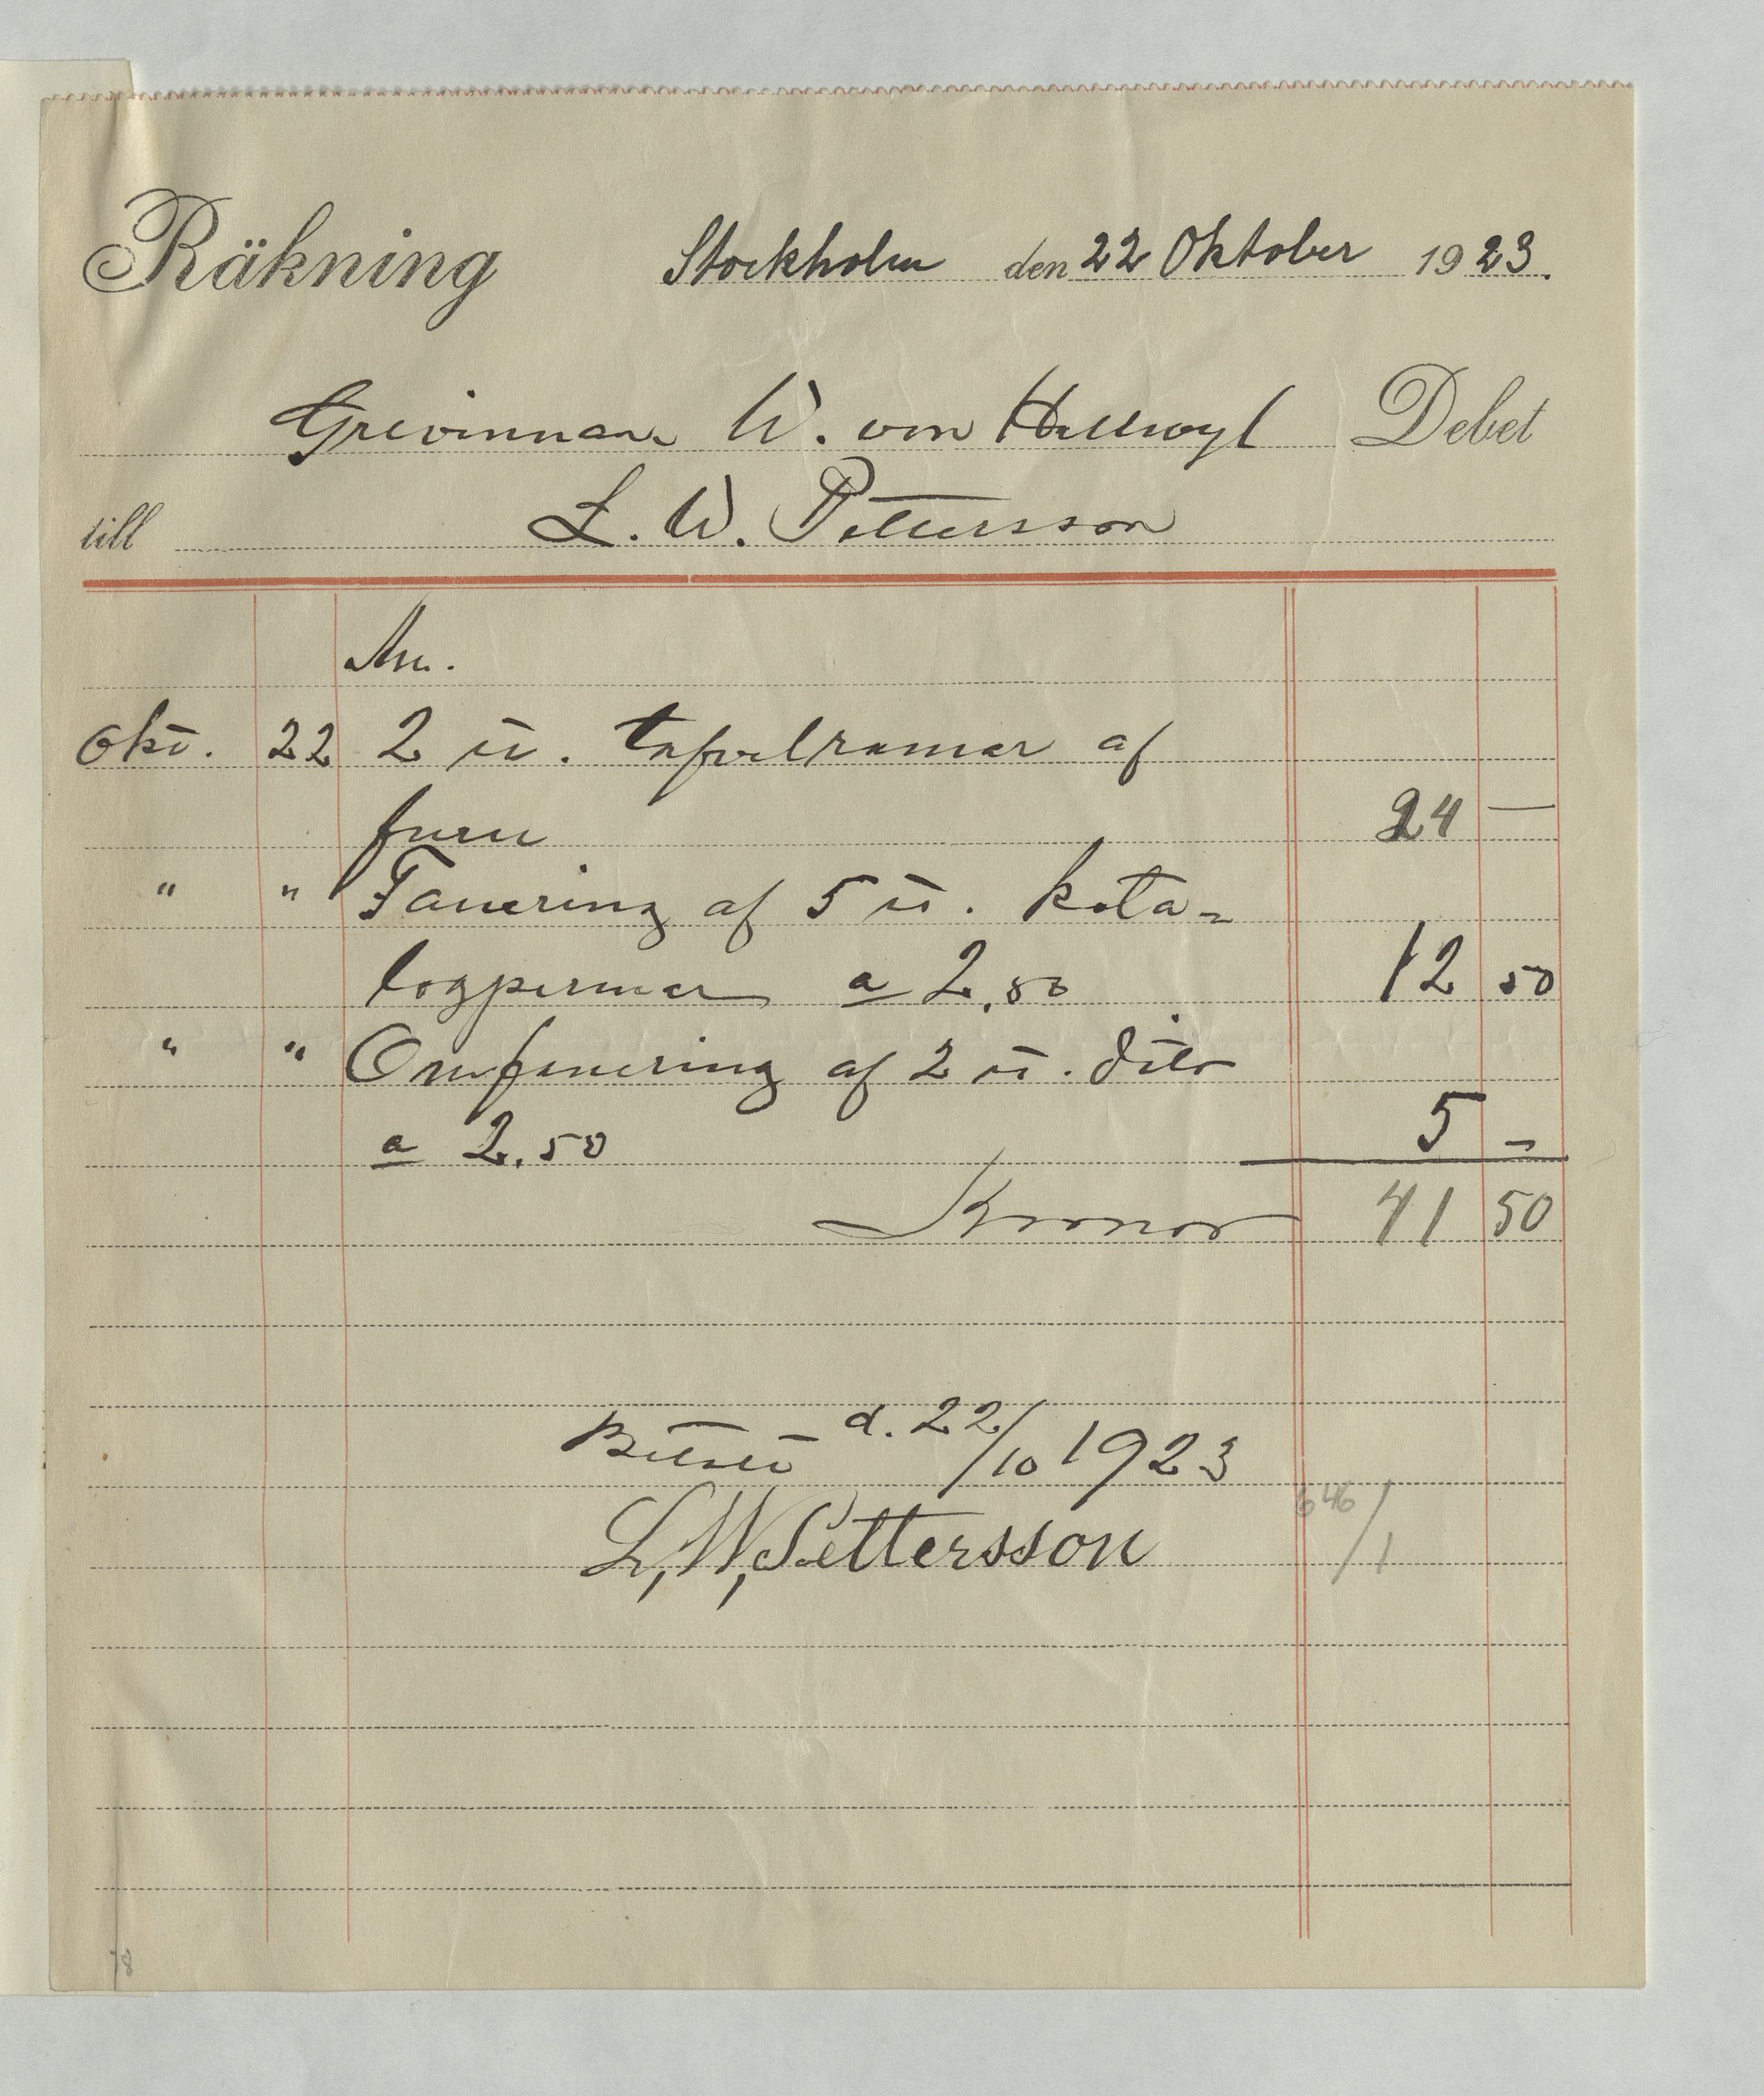 Räkning Stockholm den 22 Oktober 1923.
Grevinnan W. von Hallwyl Debet
till L. W. Pettersson
An.
Okt. 22 2 st. tafvelramar af
furu 24 —
" " Fanering af 5 st. kata-
logpermar a 2,50 12 50
" " Omfanering af 2 st. dito
a 2,50 5 -
Kronor 41 50
Betalt d. 22/10 1923
L. W. Pettersson
646/1